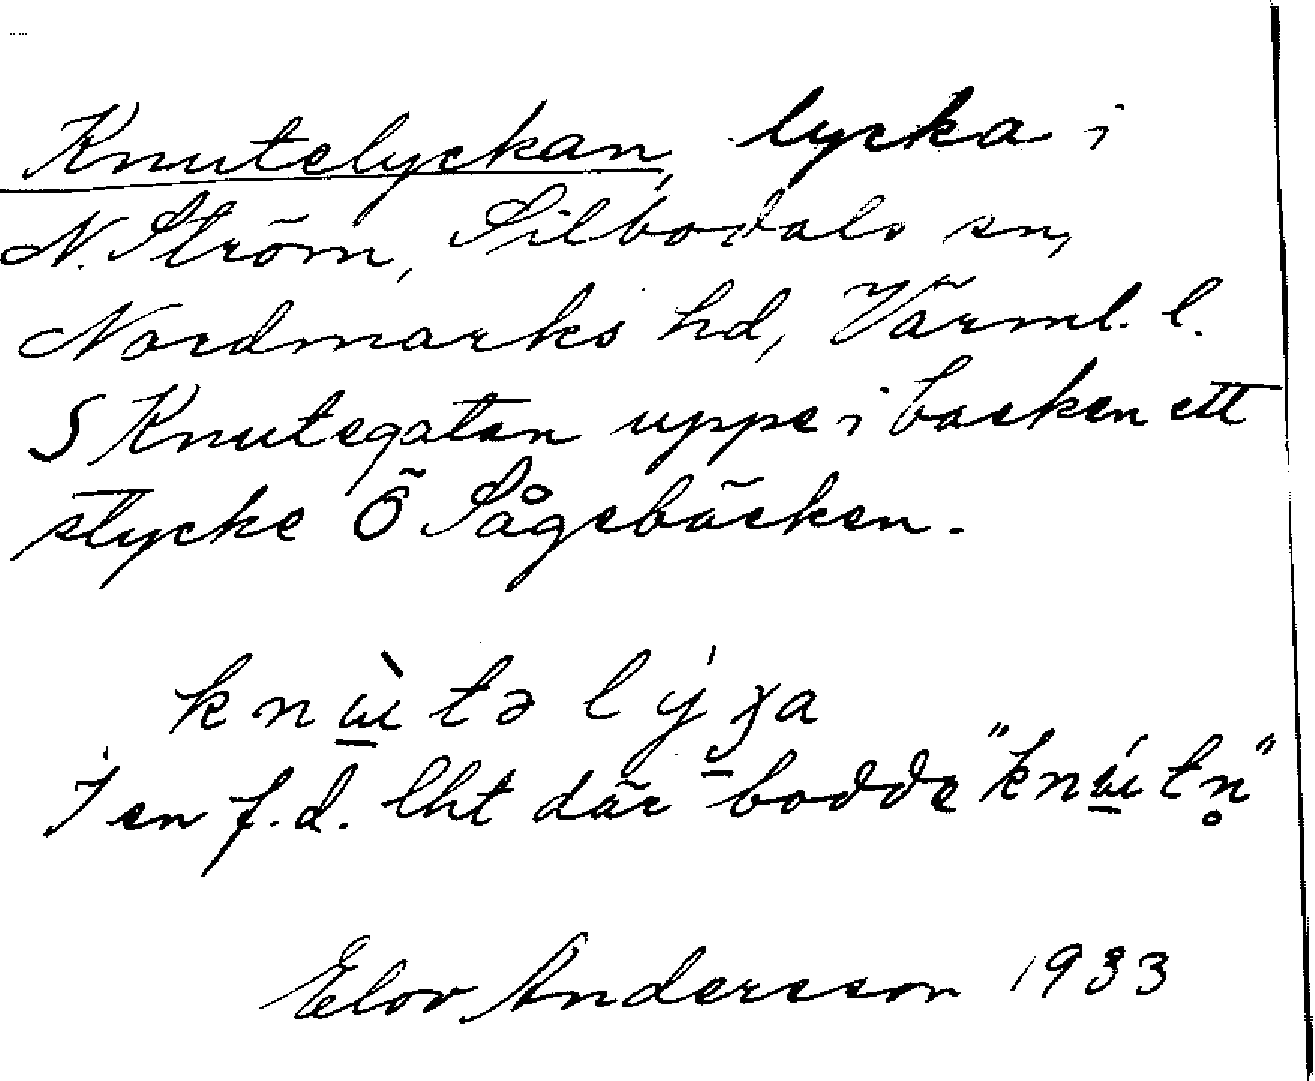 Knutelyckan, lycka i
N. Ström, Silbodals sn,
Nordmarks hd, Värml. l.
S Knutegatan uppe i backen ett
stycke Ö Sågebäcken.
I en f.d. lht där bodde
Elov Andersson 1933